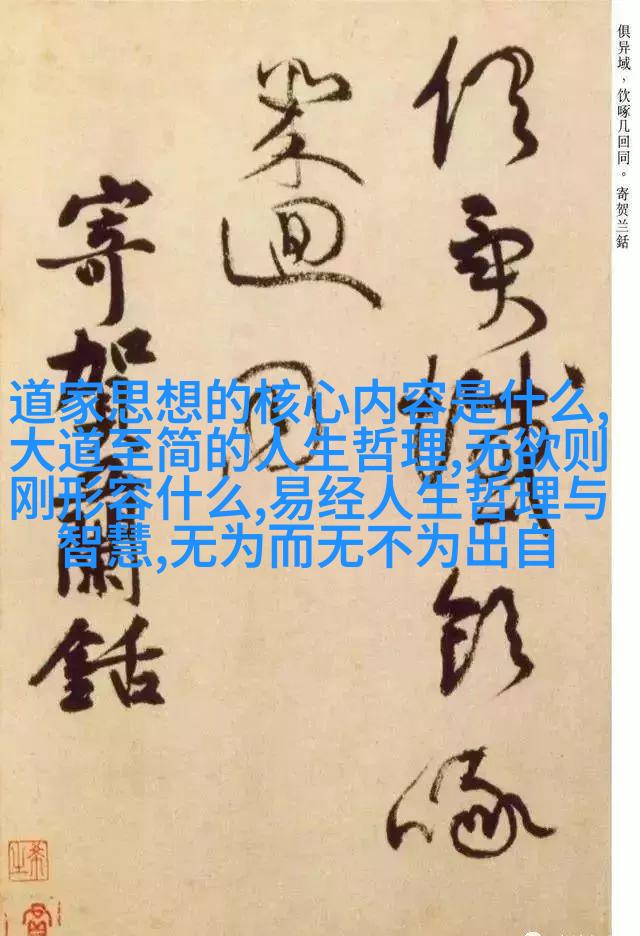 俱异域，饮啄几回同。寄贺兰銛
俱異域飲啄
幾迴同
寄賀蘭銛
道家思想的核心内容是什么,
大道至简的人生哲理,无欲则
刚形容什么,易经人生哲理与
智慧,无为而无不为出自